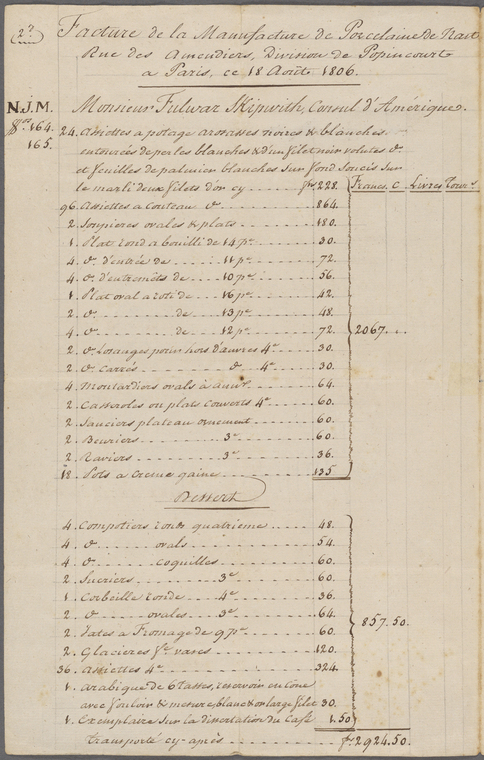 2e.
Facture de la Manufacture de Porcelaine de Nast
Rue des Amendiers, Division de Popincourt
a Paris, ce 18 Août 1806.
N.J.M. Monsieur Fulwar Skipwith, Consul d'Amérique.
164. 24. assiettes a potage arosaves noires & blanches
165. entourées de perles blanches & d'un filet noir volutes do.
et feuilles de palmier blanches sur fond soucis sur
le marli deux filets d'or cy .... frs 228. Francs. C. Livres Tour.s
96. Assiettes a Couteau do ...... 864.
2. Soupieres ovales & plats ..... 180.
1. Plat rond a bouilli de 14 po ..... 30.
4. do. d'entrée de .... 11 po ..... 72.
4. do. d'entremêts de .... 10 po ..... 56.
1. Plat oval a roti de ... 16 po ..... 42.
2. do ....... de ... 13 po ..... 48.
4. do ....... de ... 12 po ..... 72. 2067...
2. do. Losanges pour hors d'œuvres 4e .... 30.
2. do. Carrés ....... do .. 4e .... 30.
4. Moutardiers ovals à ..... 64.
2. Casseroles ou plats couverts 4e ..... 60.
2. Sauciers plateau ornement ..... 60.
2. Beuriers ....... 3e ..... 60.
2. Raviers ....... 3e ..... 36.
18. Pots a Creme gaine ..... 135
Dessert
4. Compotiers ronds quatrieme ..... 48.
4. do ..... ovals ..... 54.
4. do ..... coquilles ..... 60.
2. Sucriers ..... 3e ..... 60.
1. Corbeille ronde ... 4e ..... 36.
2. do ..... ovales .. 3e ..... 64. 857.50.
2. Tates a Fromage de 9 po ..... 60.
2. Glacieres fe vases ..... 120.
36. Assiettes 4e ..... 324.
1. Arabique de 6 Tasses, reservoir en cône
avec fouloir & mesure, blanc & on large filet 30.
1. Exemplaire sur la dissertation du Café 1.50
Transporté cy-après ...... frs 2924.50.